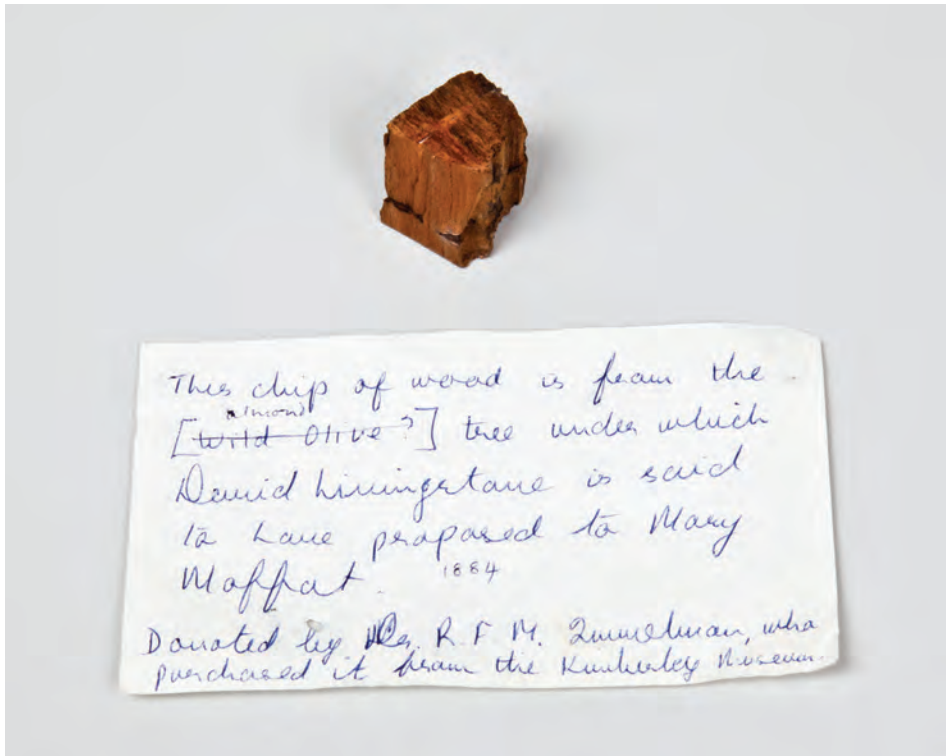 This chip of wood is from the
almond
[Wild Olive?] tree under which
David Livingstone is said
to have proposed to Mary
Moffat. 1884
Donated by R. F. M. Zimmelman, who
purchased it from the Kimberley Museum.